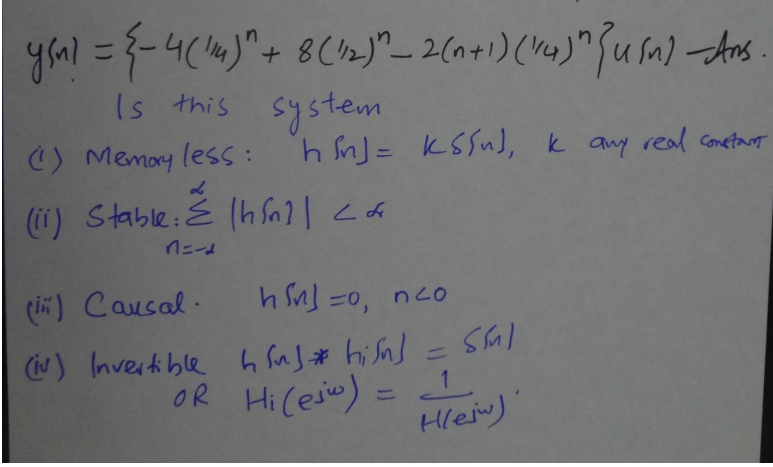 y[n] = {-4(1/4)^n + 8(1/2)^n - 2(n+1)(1/4)^n}u[n] - Ans.
Is this system
(i) Memoryless: h[n] = kδ[n], k any real constant
(ii) Stable: ∞ Σ n=-∞ |h[n]| < ∞
(iii) Causal. h[n] = 0, n<0
(iv) Invertible h[n] * hi[n] = δ[n]
OR Hi(e^jω) = 1/H(e^jω).